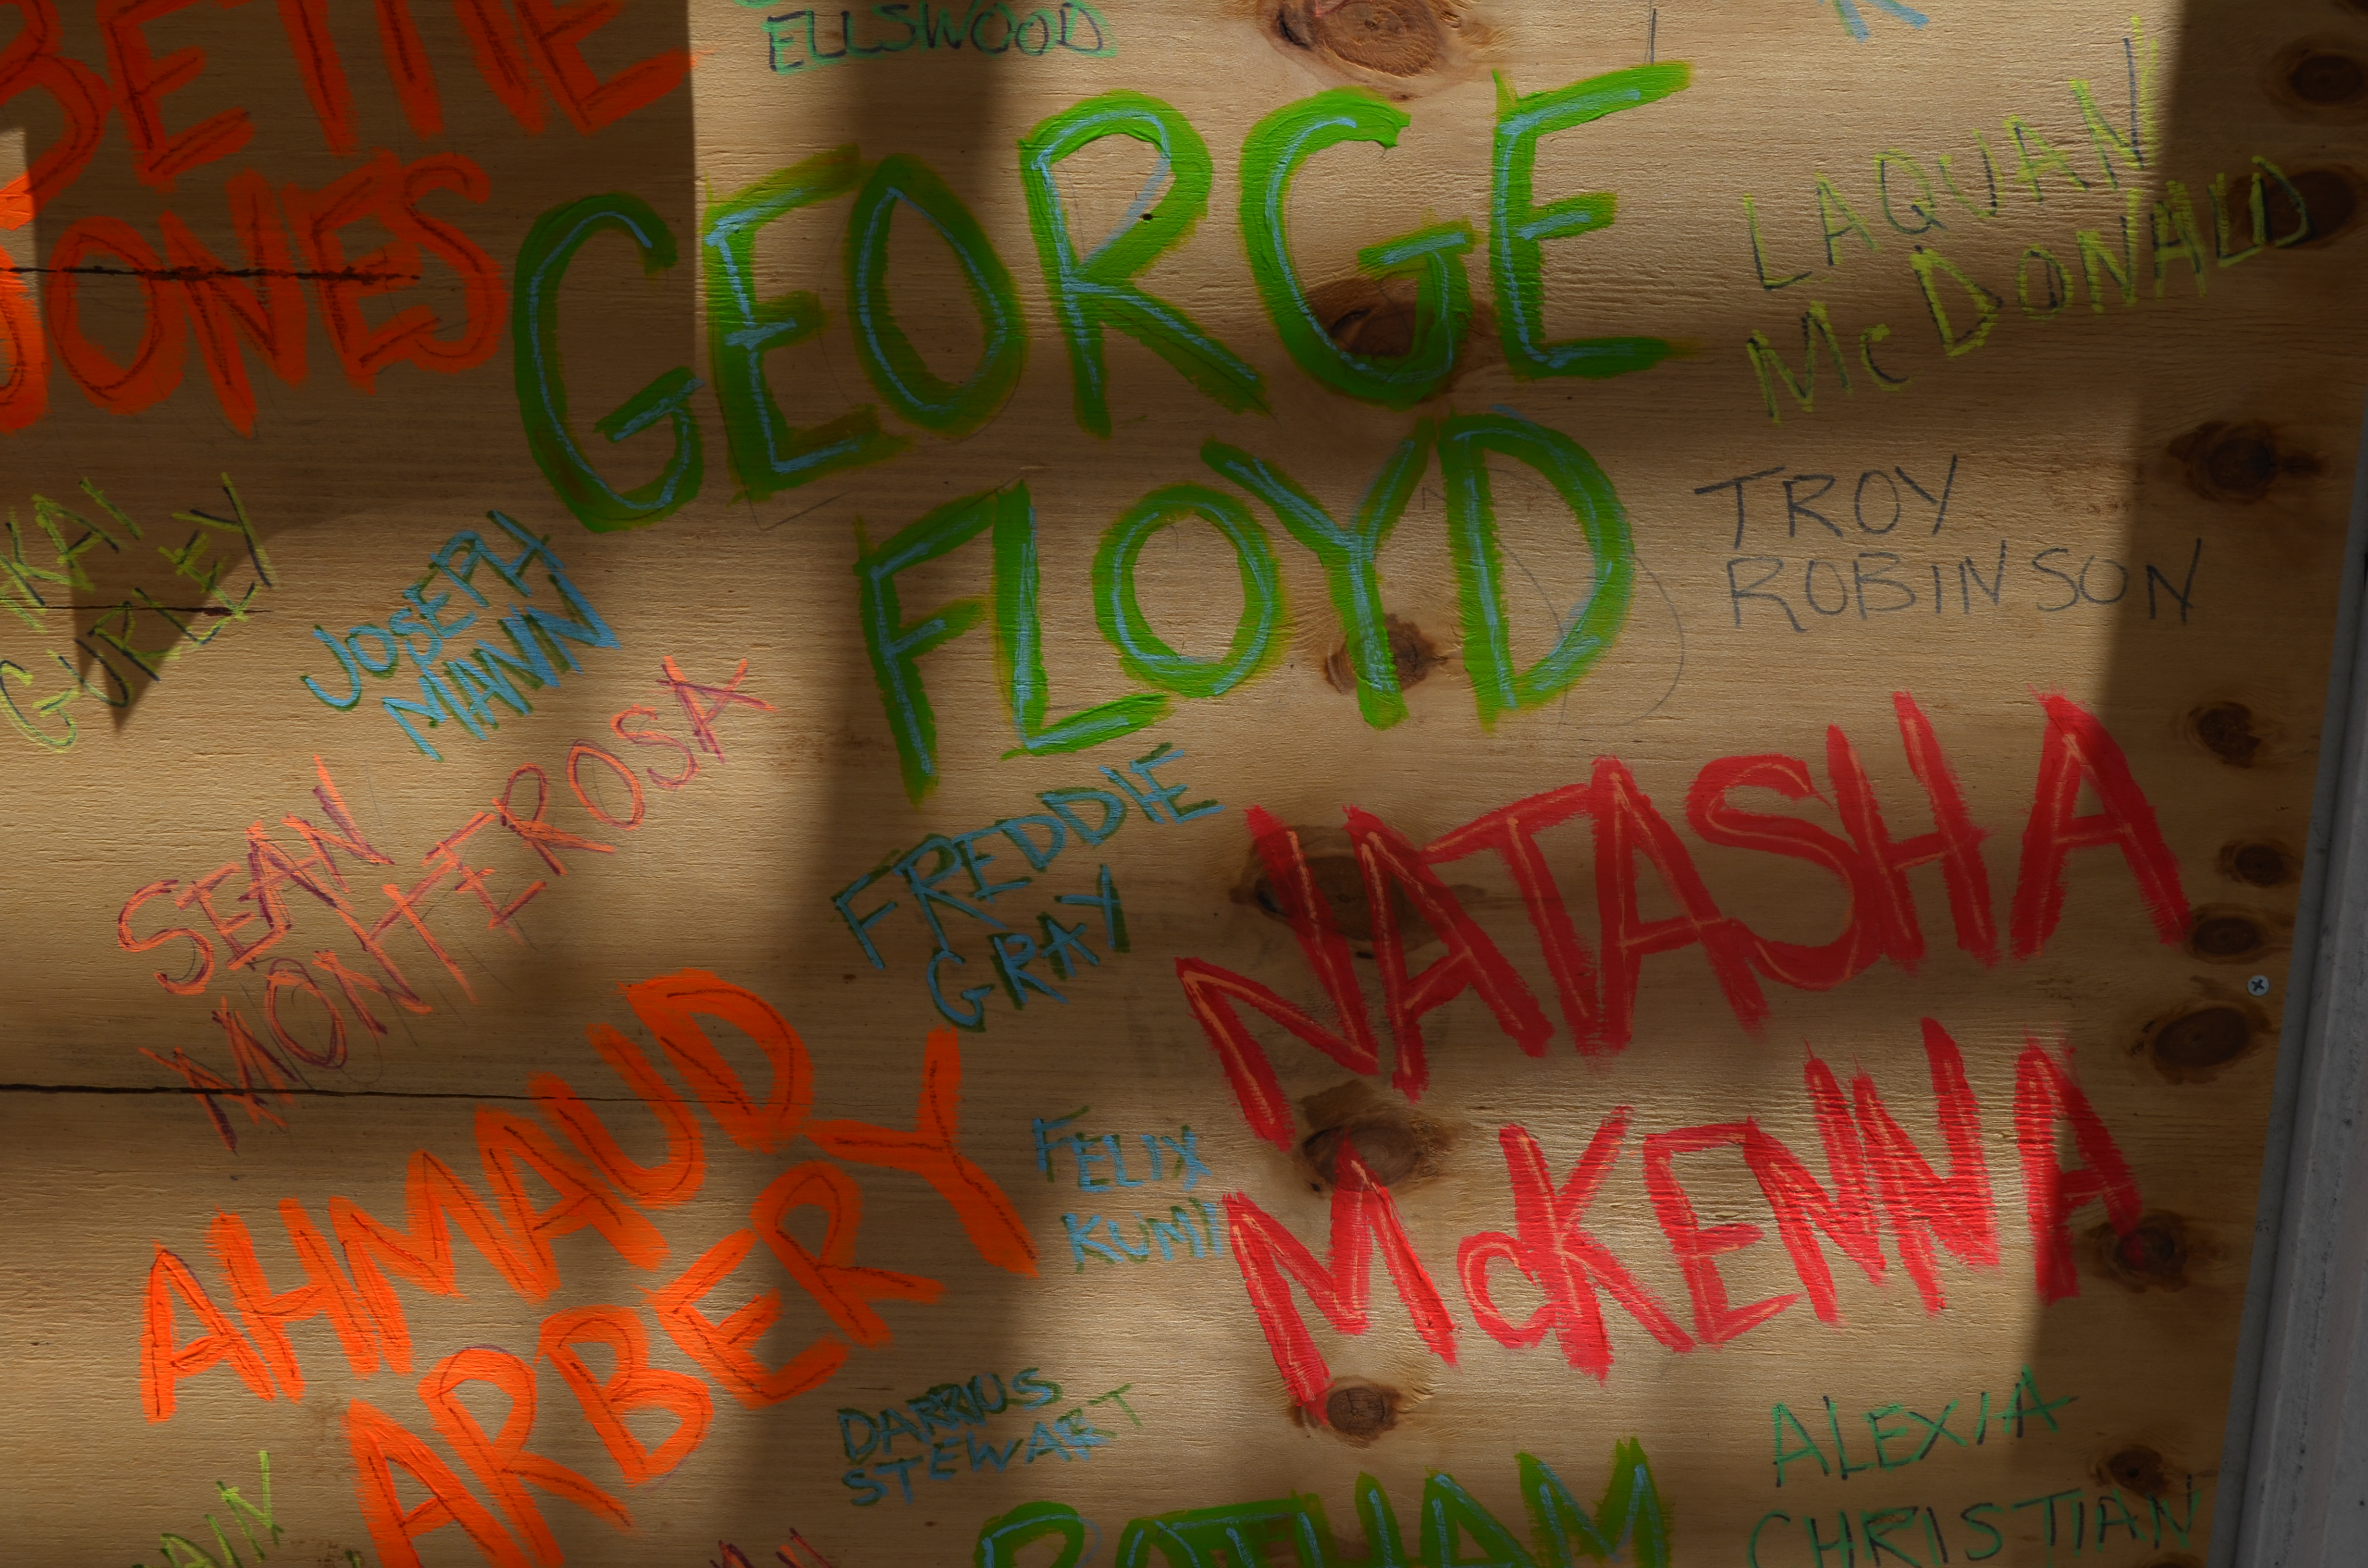 BETTIE
JONES
ELLSWOOD
GEORGE
FLOYD
LAQUAN
McDONALD
TROY
ROBINSON
GURLEY
JOSEPH
MANN
SEAN
MONTEROSA
FREDDIE
GRAY
NATASHA
McKENNA
AHMAUD
ARBERY
FELIX
KUMI
DARRIUS
STEWART
ALEXIA
CHRISTIAN
BOTHAM